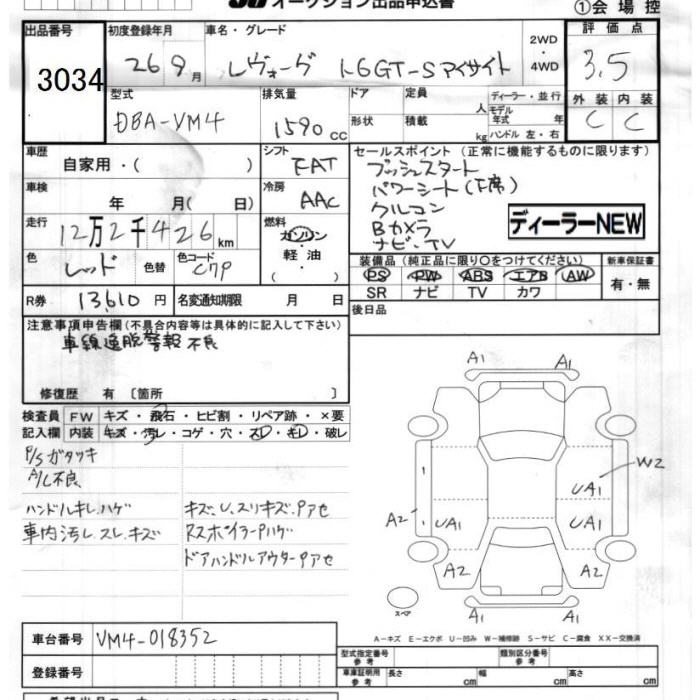 オークション出品申込書
①会場控
出品番号 初度登録年月 車名・グレード 2WD・4WD 評価点
3034 26 9月 レヴォーグ 1.6GT-Sアイサイト 3.5
型式 排気量 ドア 定員 人 ディーラー・並行 外装 内装
DBA-VM4 1590cc 形状 積載 kg モデル年式 年 ハンドル 左・右 C C
車歴 自家用・( ) シフト FAT セールスポイント(正常に機能するものに限ります)
プッシュスタート
車検 年 月( 日) 冷房 AAC パワーシート(F席)
クルコン
走行 12万2千426km 燃料 ガソリン・軽油・( ) Bカメラ ディーラーNEW
ナビ・TV
色 レッド 色替 色コード C7P 装備品(純正品に限り○をつけてください) 新車保証書
PS PW ABS エアB AW 有・無
R券 13,610円 名変通知期限 月 日 SR ナビ TV カワ
注意事項申告欄(不具合内容等は具体的に記入して下さい) 後日品
車線逸脱警報不良
修復歴 有〔箇所 〕
検査員 FW キズ・飛石・ヒビ割・リペア跡・×要
記入欄 内装 キズ・汚レ・コゲ・穴・スレ・キレ・破レ
P/Sガタツキ
A/C不良
ハンドルキレ.ハゲ キズ.U.スリキズ.Pアセ
車内汚レ.スレ.キズ Rスポイラー Pハゲ
ドアハンドルアウターPアセ
A1 A1
W2
UA1
A2 UA1 UA1
A2 A2
スペア A1 A1
A-キズ E-エクボ U-凹み W-補修跡 S-サビ C-腐食 XX-交換済
車台番号 VM4-018352 型式指定番号 参考 類別区分番号 参考
登録番号 車庫証明用 参考 長さ cm 幅 cm 高さ cm